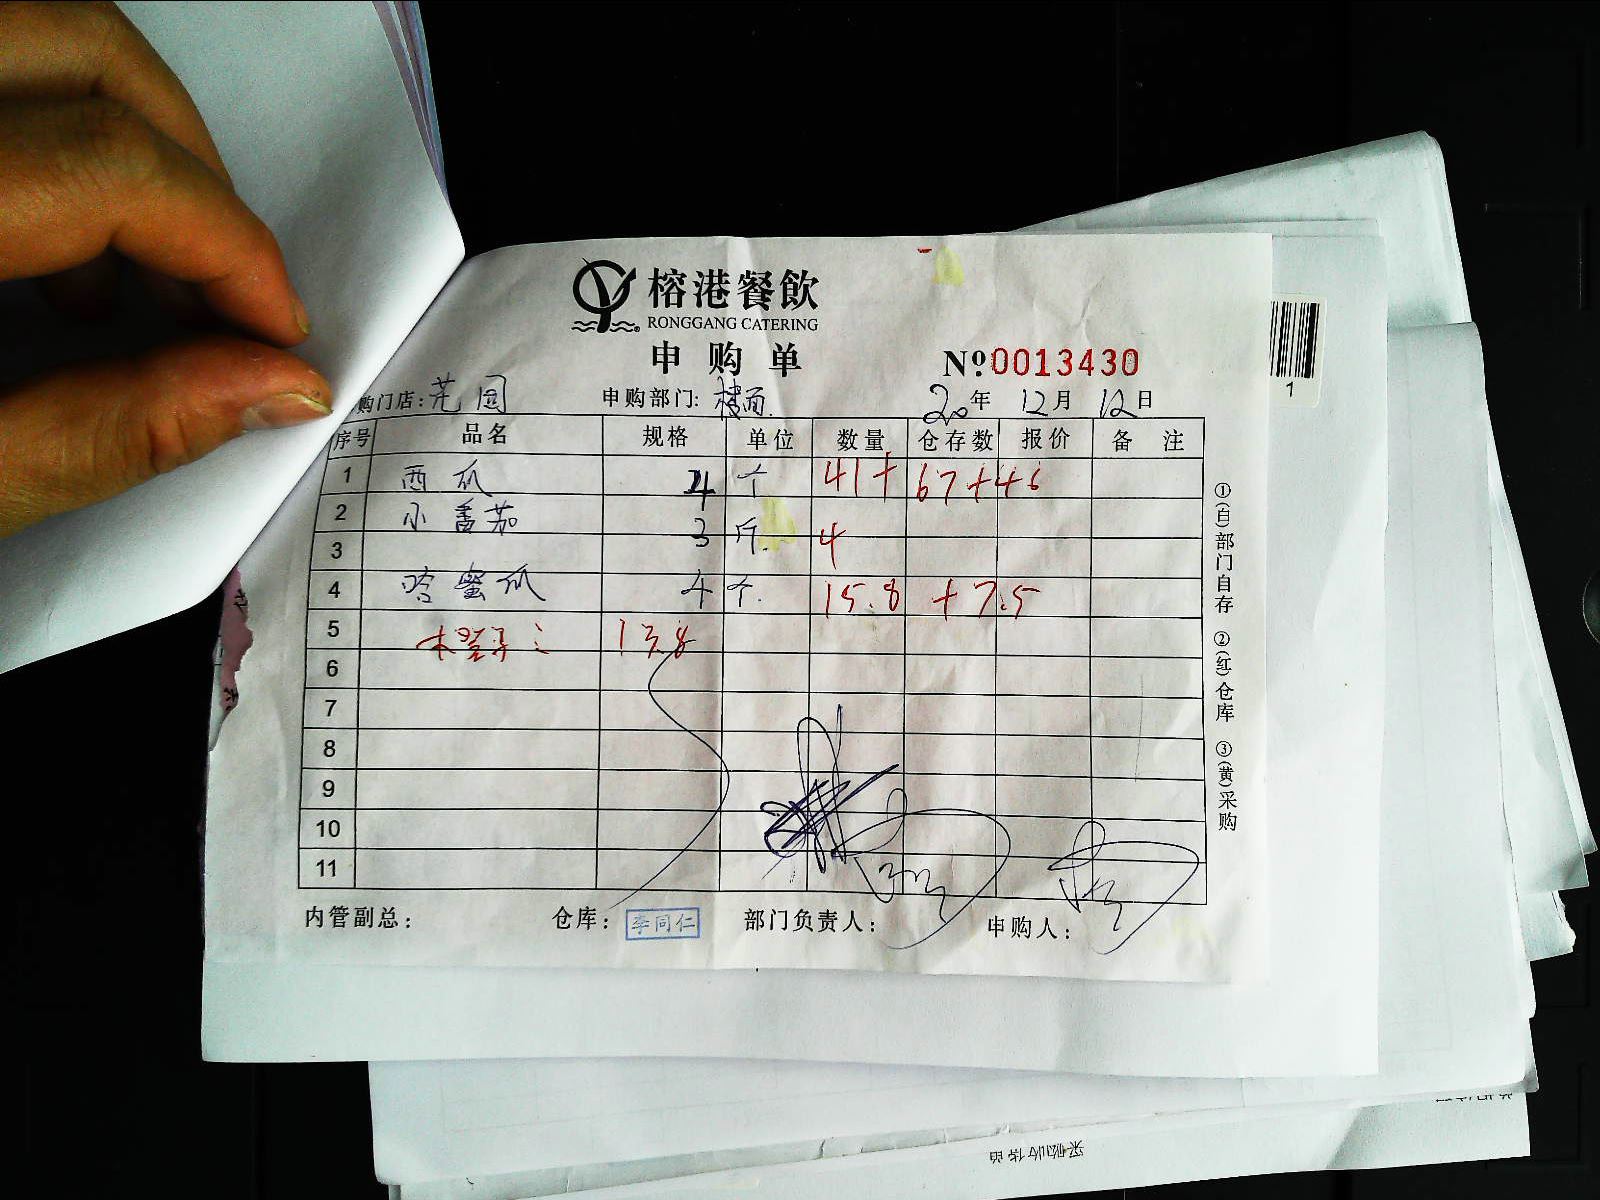 榕港餐飲
RONGGANG CATERING
申购单 №0013430
购门店: 芫园 申购部门: 楼面 20年 12月 12日
序号 品名 规格 单位 数量 仓存数 报价 备注
1 西瓜 4 个 41+ 67+46
2 小番茄 3 斤 4
3
4 哈蜜瓜 4 个 15.8 +7.5
5 13.8
6
7
8
9
10
11
内管副总: 仓库: 李同仁 部门负责人: 申购人:
①(白)部门自存 ②(红)仓库 ③(黄)采购
1
采购收货单